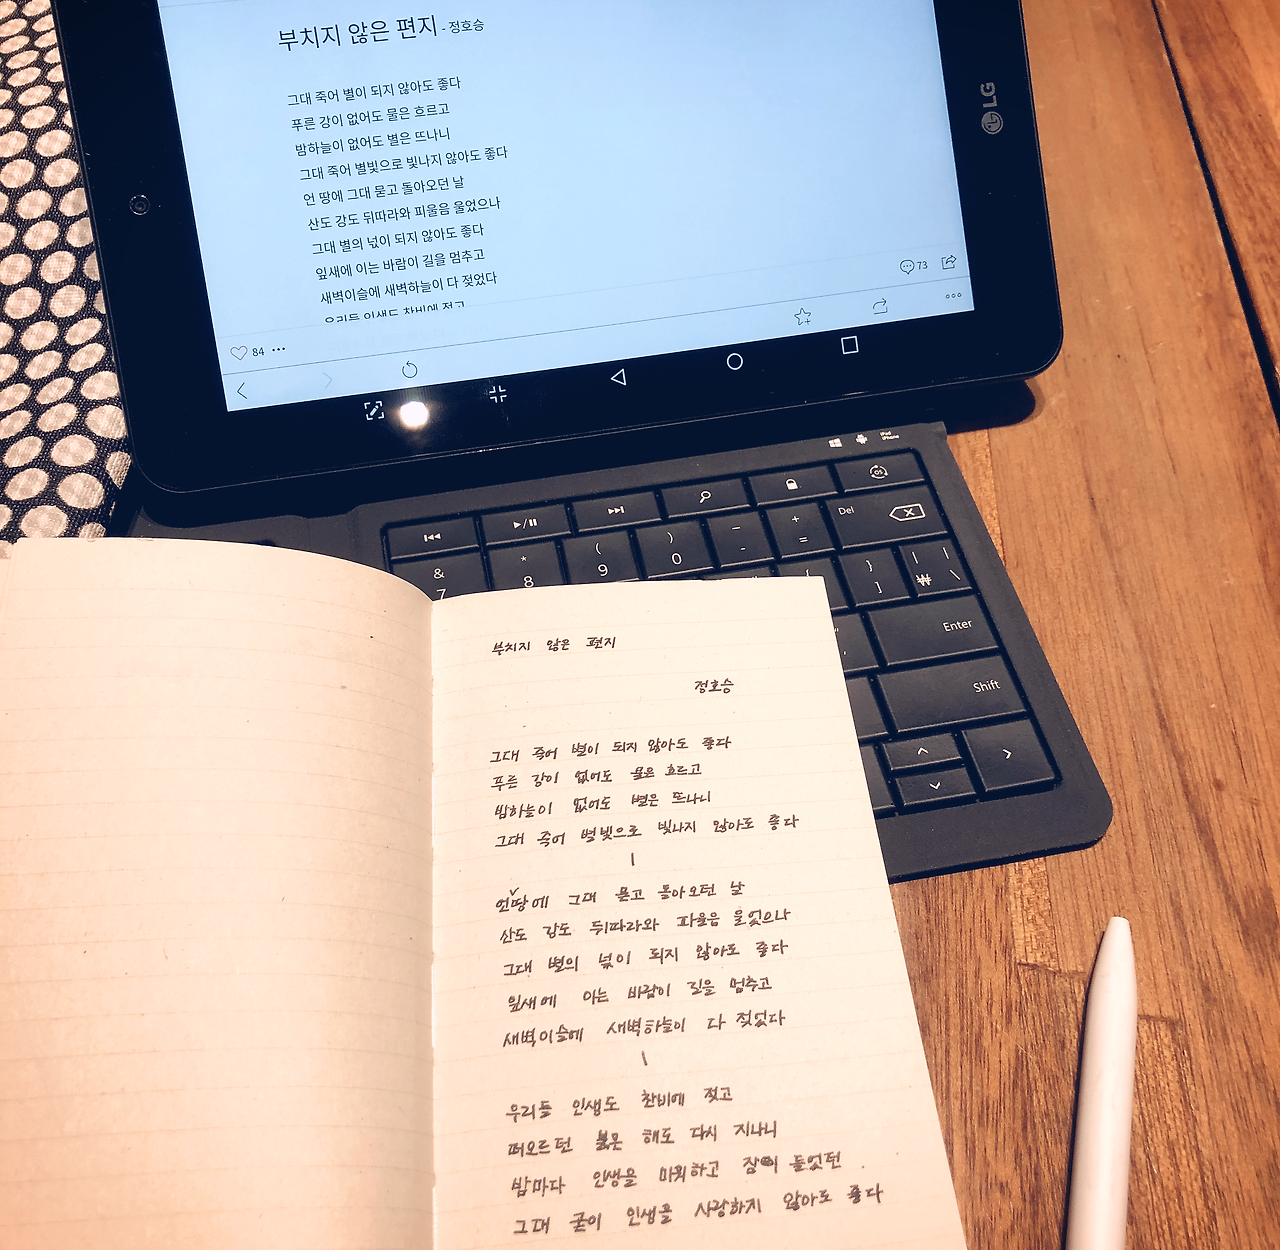 부치지 않은 편지 - 정호승
그대 죽어 별이 되지 않아도 좋다
푸른 강이 없어도 물은 흐르고
밤하늘이 없어도 별은 뜨나니
그대 죽어 별빛으로 빛나지 않아도 좋다
언 땅에 그대 묻고 돌아오던 날
산도 강도 뒤따라와 피울음 울었으나
그대 별의 넋이 되지 않아도 좋다
잎새에 이는 바람이 길을 멈추고
새벽이슬에 새벽하늘이 다 젖었다
우리들 인생도 찬비에 젖고
84
73
LG
iPad
iPhone
OS
Del
& * ( ) _ +
7 8 9 0 - =
{ } | |
] ₩ \
" Enter
'
Shift
부치지 않은 편지
정호승
그대 죽어 별이 되지 않아도 좋다
푸른 강이 없어도 물은 흐르고
밤하늘이 없어도 별은 뜨나니
그대 죽어 별빛으로 빛나지 않아도 좋다
언땅에 그대 묻고 돌아오던 날
산도 강도 뒤따라와 피울음 울었으나
그대 별의 넋이 되지 않아도 좋다
잎새에 이는 바람이 길을 멈추고
새벽이슬에 새벽하늘이 다 젖었다
우리들 인생도 찬비에 젖고
떠오르던 붉은 해도 다시 지나니
밤마다 인생을 미워하고 잠이 들었던
그대 굳이 인생을 사랑하지 않아도 좋다